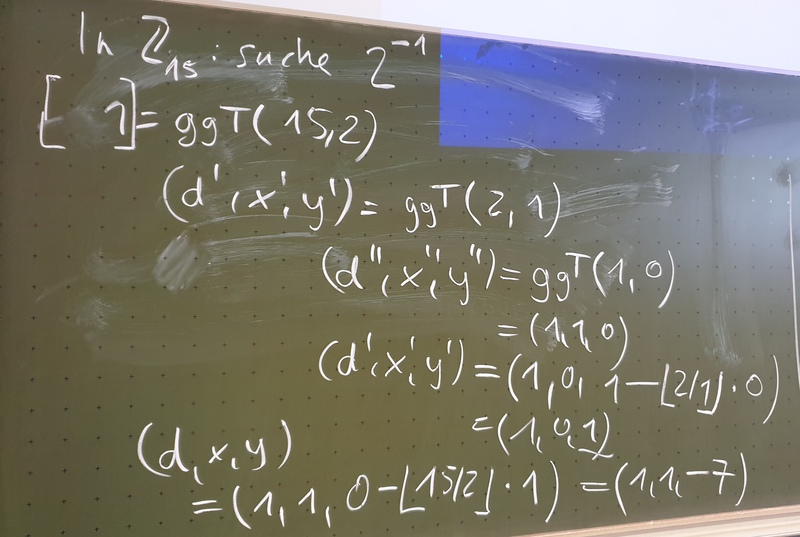 In ℤ₁₅: suche 2⁻¹
[ 1] = ggT(15,2)
(d', x', y') = ggT(2, 1)
(d'', x'', y'') = ggT(1, 0)
= (1, 1, 0)
(d', x', y') = (1, 0, 1 - ⌊2/1⌋ · 0)
= (1, 0, 1)
(d, x, y)
= (1, 1, 0 - ⌊15/2⌋ · 1) = (1, 1, -7)